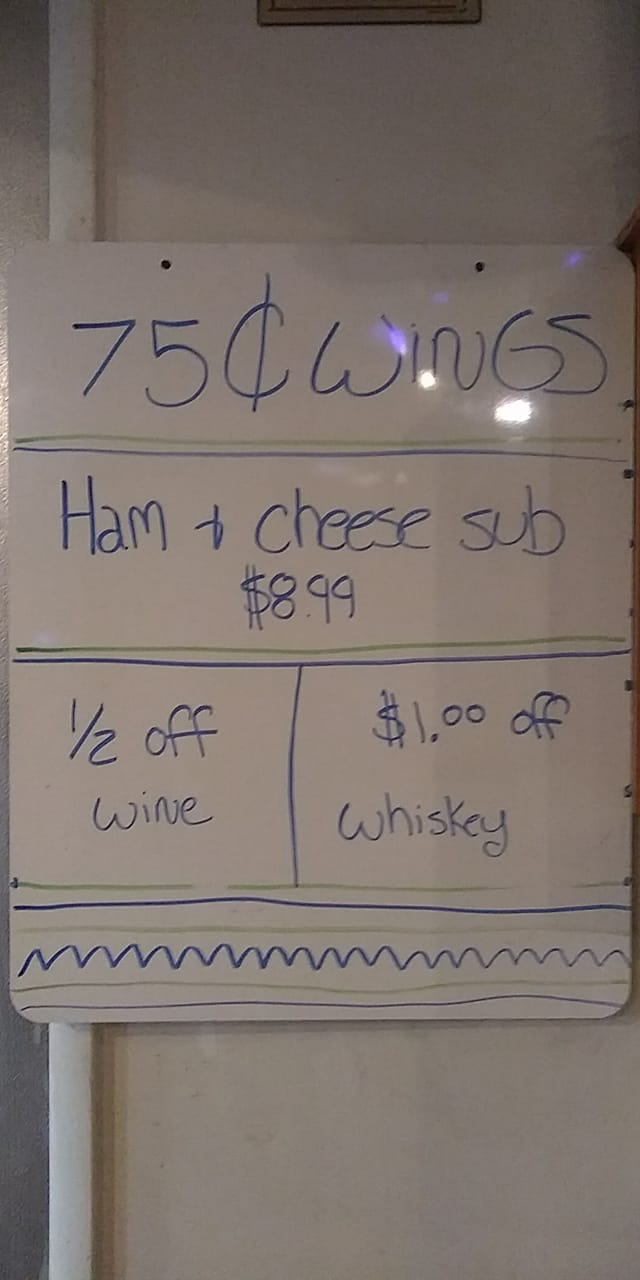 75¢ WINGS
Ham + cheese sub
$8.99
1/2 off
wine
$1.00 off
whiskey